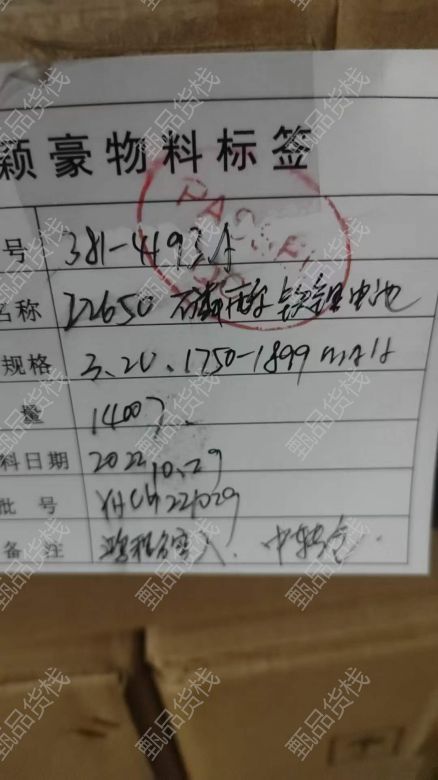 颖豪物料标签
号 381-4493A
名称 22650 磷酸铁锂电池
规格 3.2V.1750-1899mAh
量 1400了.
料日期 2022.10.29
批号 YHCG221029
备注 中转仓.
PASSED
甄品货栈